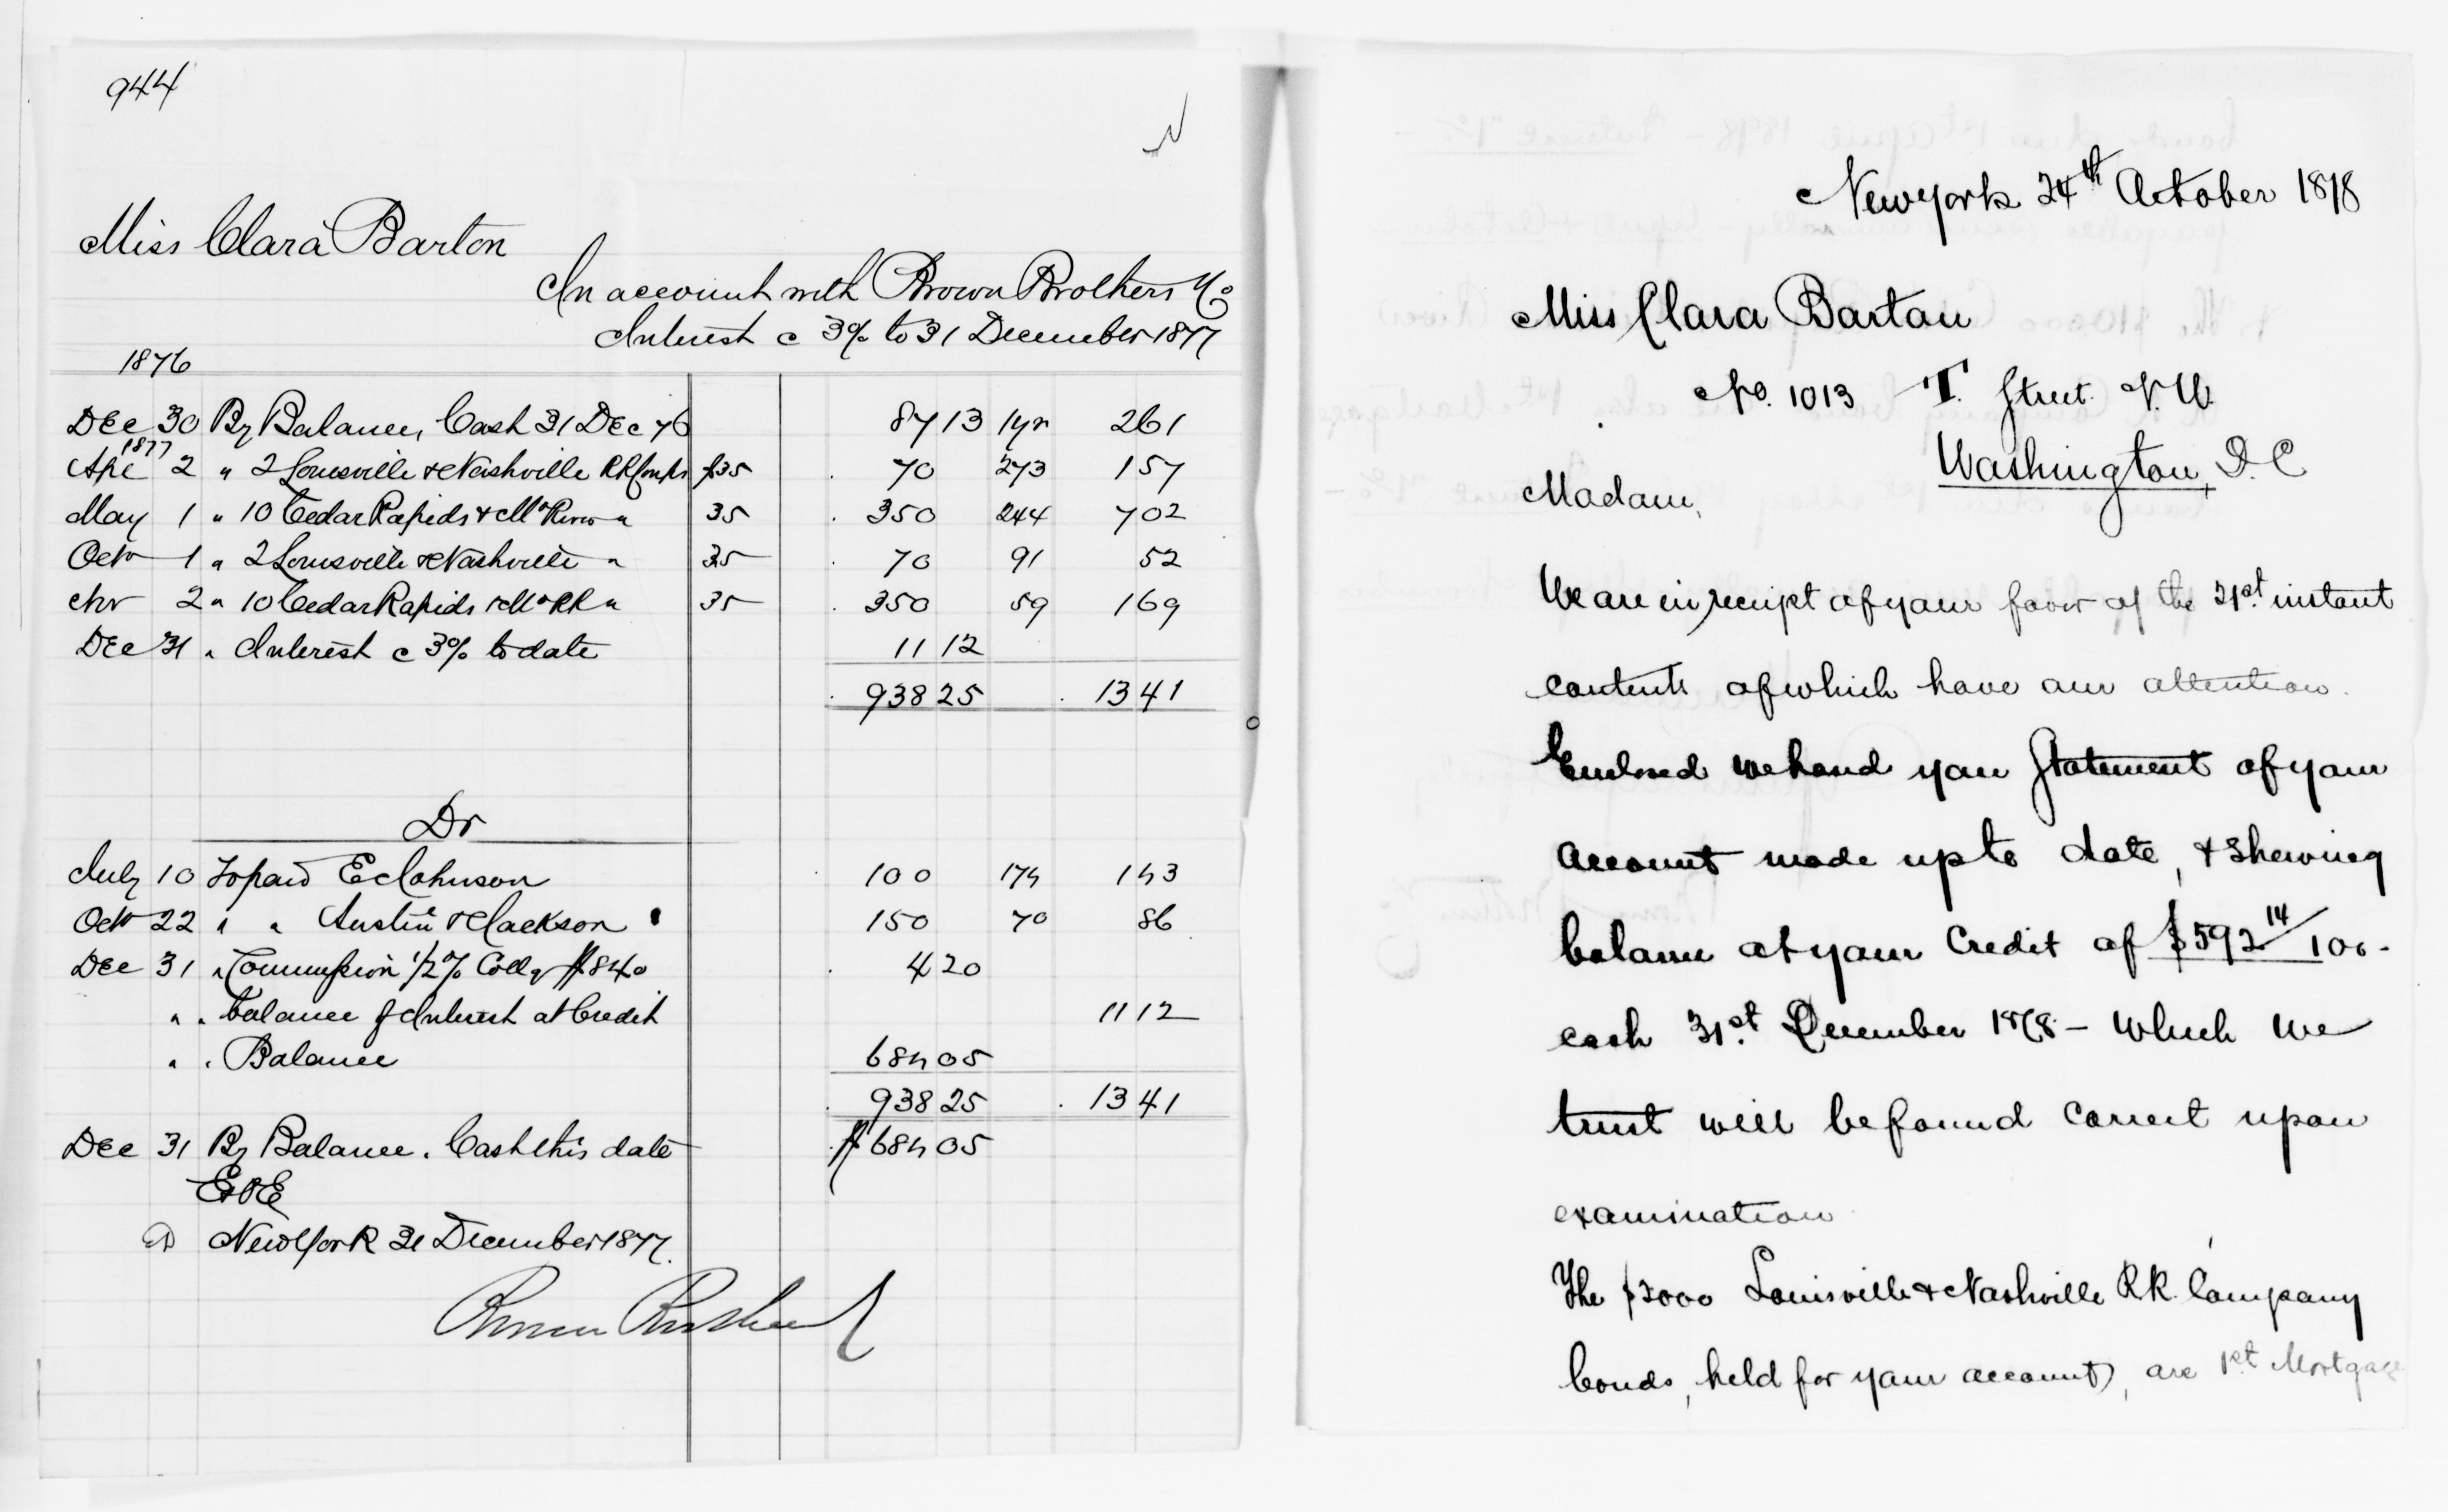 944
Miss Clara Barton
In account with Brown Brothers & Co
Interest @ 3% to 31 December 1877
1876
Dec 30 By Balance, Cash 31 Dec 76 87 13 1yr 261
1877
Apl 2 " 2 Louisville & Nashville RR Coups $35 70 273 157
May 1 " 10 Cedar Rapids & Mo River " 35 350 244 702
Oct 1 " 2 Louisville & Nashville " 35 70 91 52
Nov 2 " 10 Cedar Rapids & Mo RR " 35 350 59 169
Dec 31 " Interest @ 3% to date 11 12
938 25 13 41
Dr
July 10 To paid E Johnson 100 174 143
Oct 22 " " Austin & Jackson 150 70 86
Dec 31 " Commission 1/2% Collg $840 4 20
" " balance of Interest at Credit 11 12
" " Balance 684 05
938 25 13 41
Dec 31 By Balance. Cash this date $684 05
E&OE
New York 31 December 1877.
Brown Brothers & Co
New York 24th October 1878
Miss Clara Barton
No. 1013 T. Street. N.W.
Washington, D.C
Madam,
We are in receipt of your favor of the 21st instant
contents of which have our attention.
Enclosed we hand you Statement of your
account made up to date, & shewing
balance at your Credit of $592 14/100 -
cash 31st December 1878 - which we
trust will be found correct upon
examination
The $2000 Louisville & Nashville R.R. Company
bonds, held for your account, are 1st Mortgage